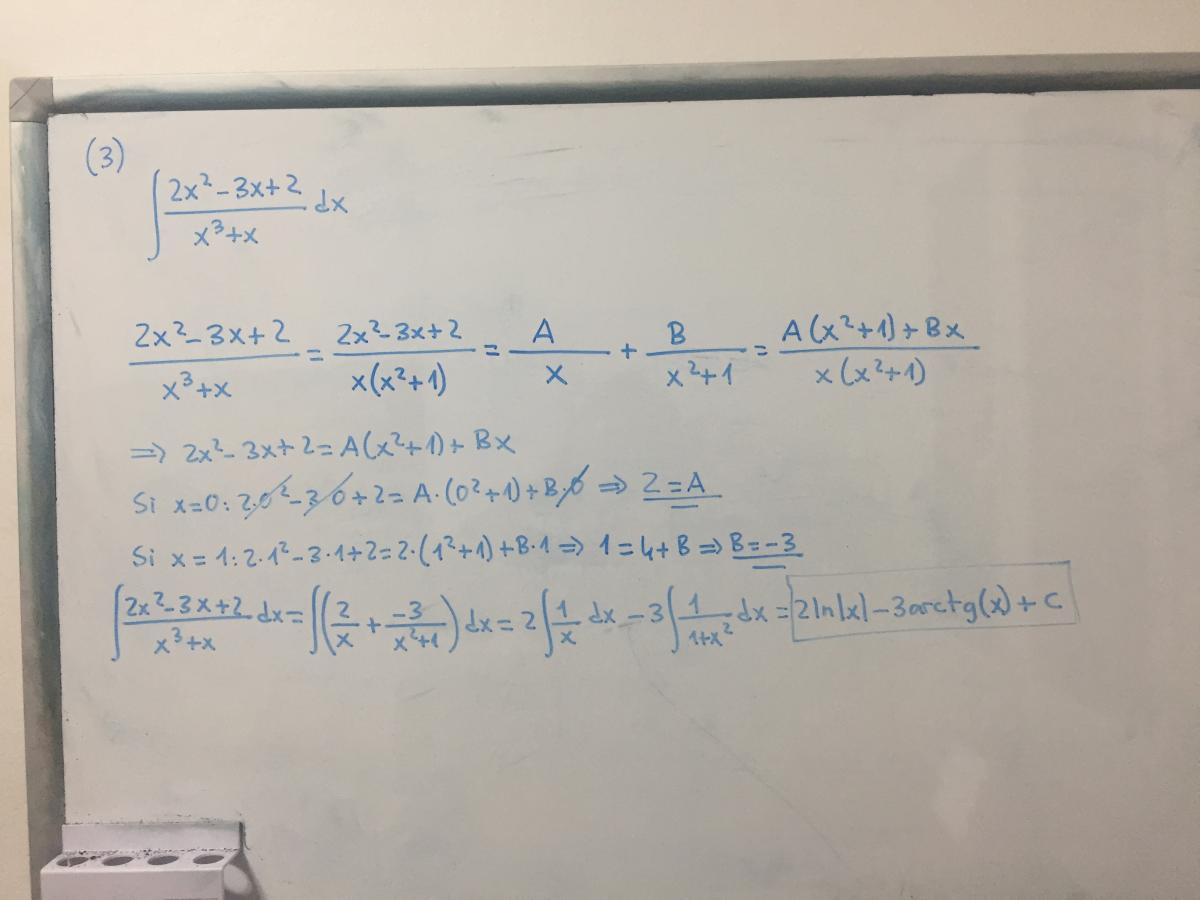 (3)
∫ (2x²-3x+2)/(x³+x) dx
(2x²-3x+2)/(x³+x) = (2x²-3x+2)/(x(x²+1)) = A/x + B/(x²+1) = (A(x²+1)+Bx)/(x(x²+1))
⇒ 2x²-3x+2=A(x²+1)+Bx
Si x=0: 2·0²-3·0+2=A·(0²+1)+B·0 ⇒ 2=A
Si x=1: 2·1²-3·1+2=2·(1²+1)+B·1 ⇒ 1=4+B ⇒ B=-3
∫ (2x²-3x+2)/(x³+x) dx = ∫(2/x + -3/(x²+1)) dx = 2∫ 1/x dx -3∫ 1/(1+x²) dx = 2ln|x|-3arctg(x)+C